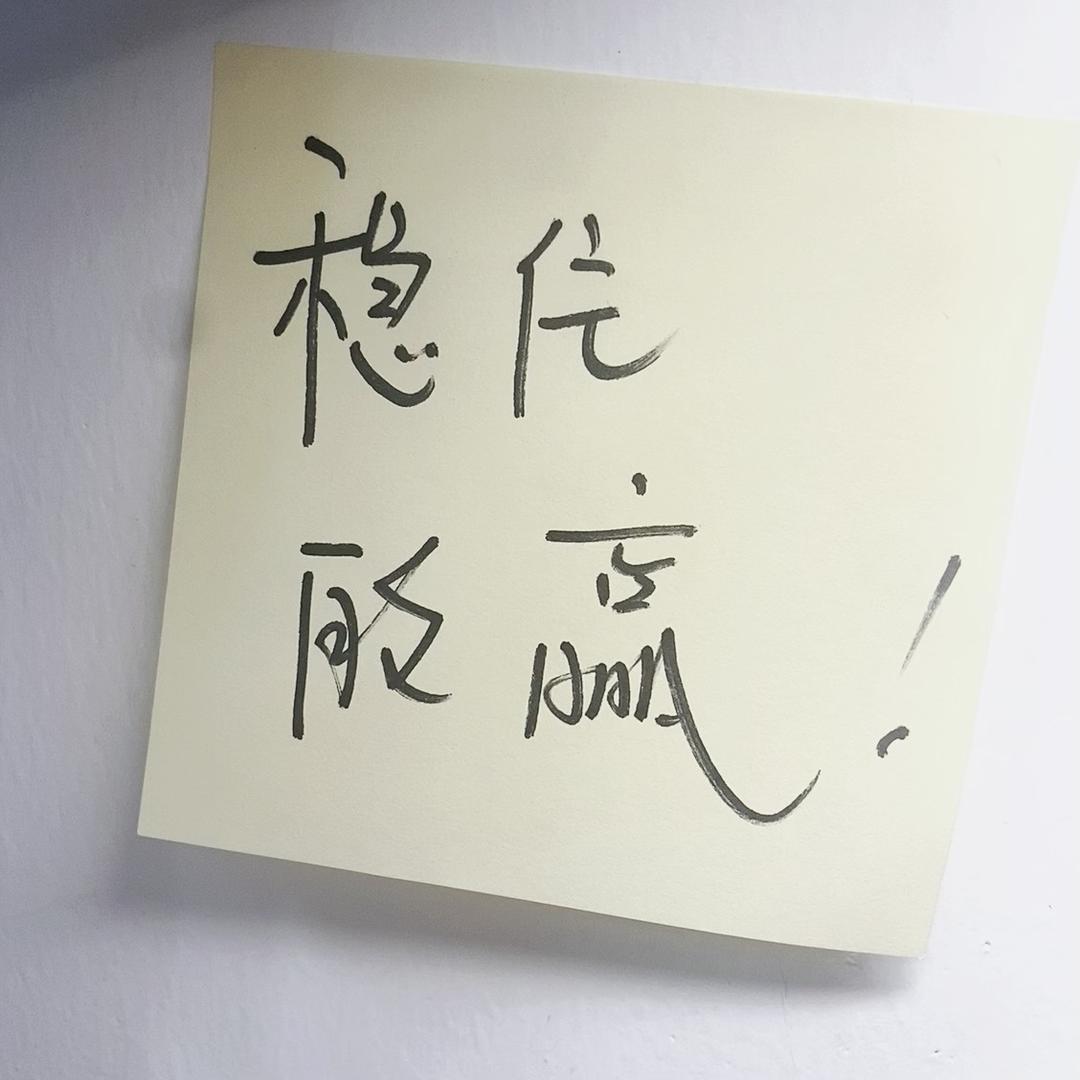 稳住
能赢!